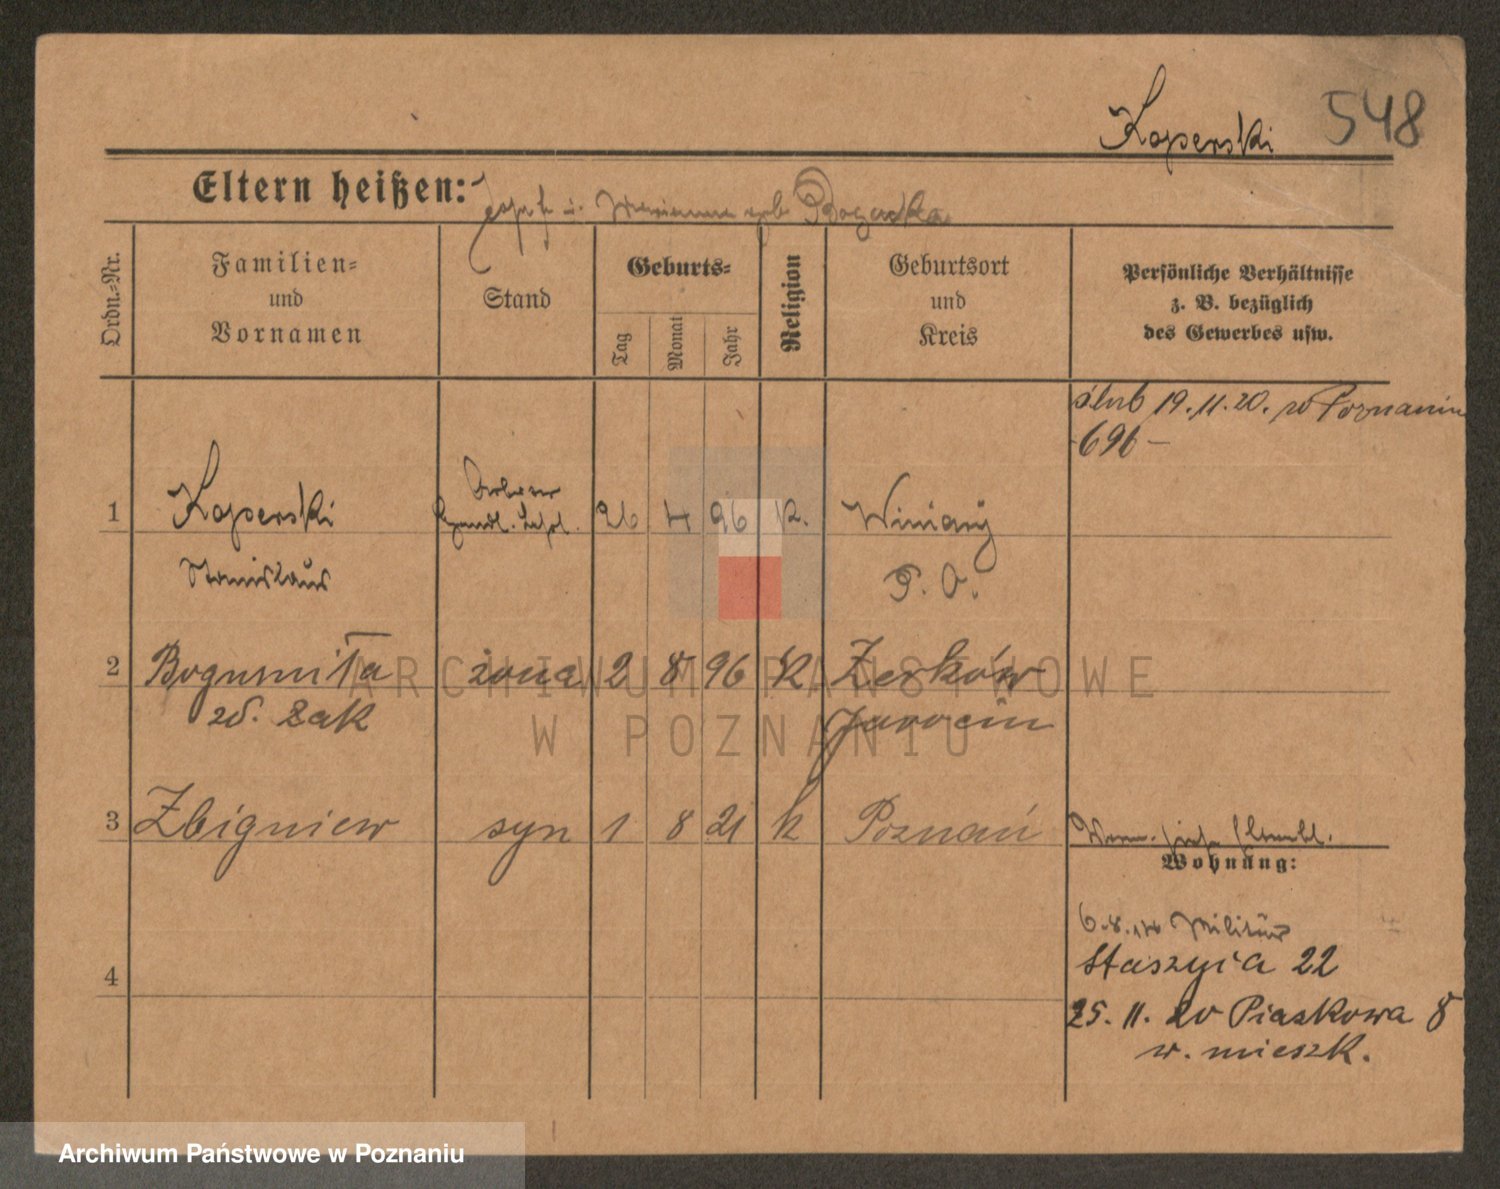 Koperski 548
Eltern heißen: Joseph u. Marianna geb. Bogacka
Ordn.-Nr.
Familien-
und
Vornamen
Stand
Geburts-
Tag
Monat
Jahr
Religion
Geburtsort
und
Kreis
Persönliche Verhältnisse
z. B. bezüglich
des Gewerbes usw.
ślub 19.11.20. w Poznaniu
-696-
1 Koperski 26 4 96 k. Winiary
Stanislaus P. O.
2 Bogumiła żona 2 8 96 k Żerków
zd. Żak Jarocin
3 Zbigniew syn 1 8 21 k Poznań
Wohnung:
Militär
Staszyca 22
4
25. 11. 20 Piaskowa 8
w. mieszk.
ARCHIWUM PAŃSTWOWE
W POZNANIU
Archiwum Państwowe w Poznaniu